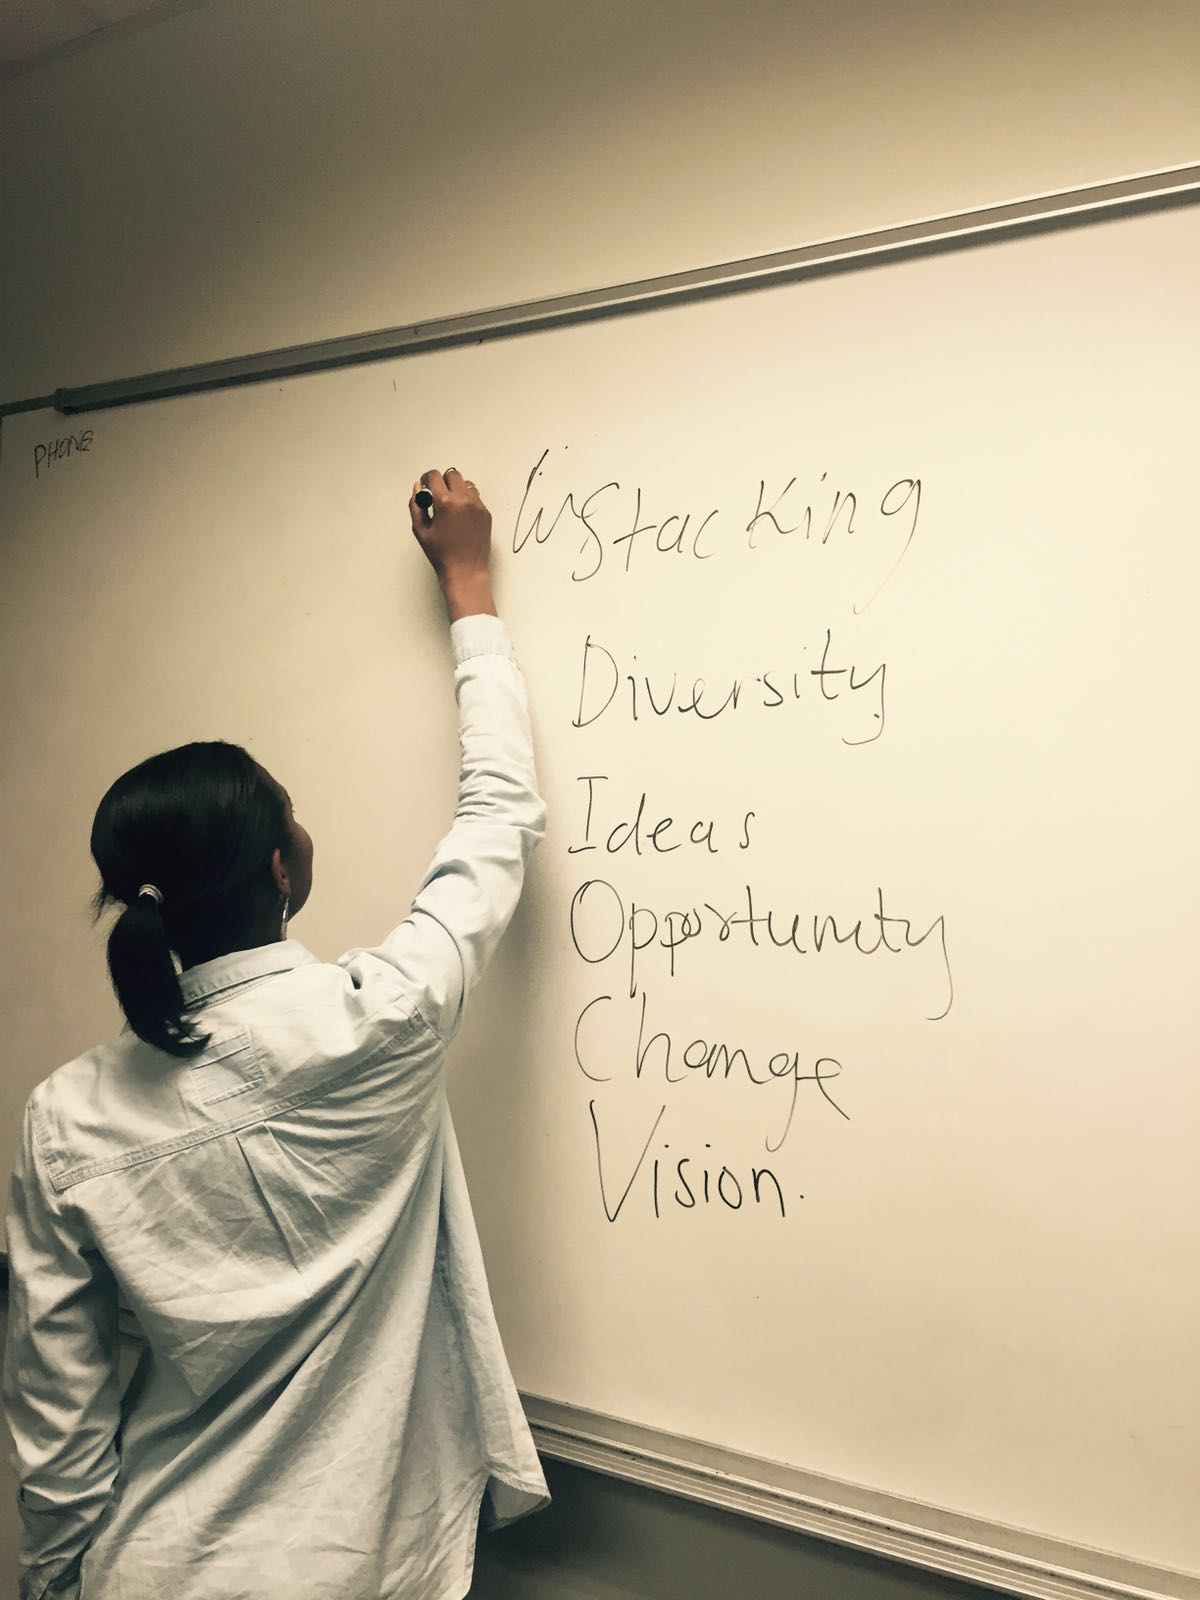 PHONE
Stacking
Diversity
Ideas
Opportunity
Change
Vision.